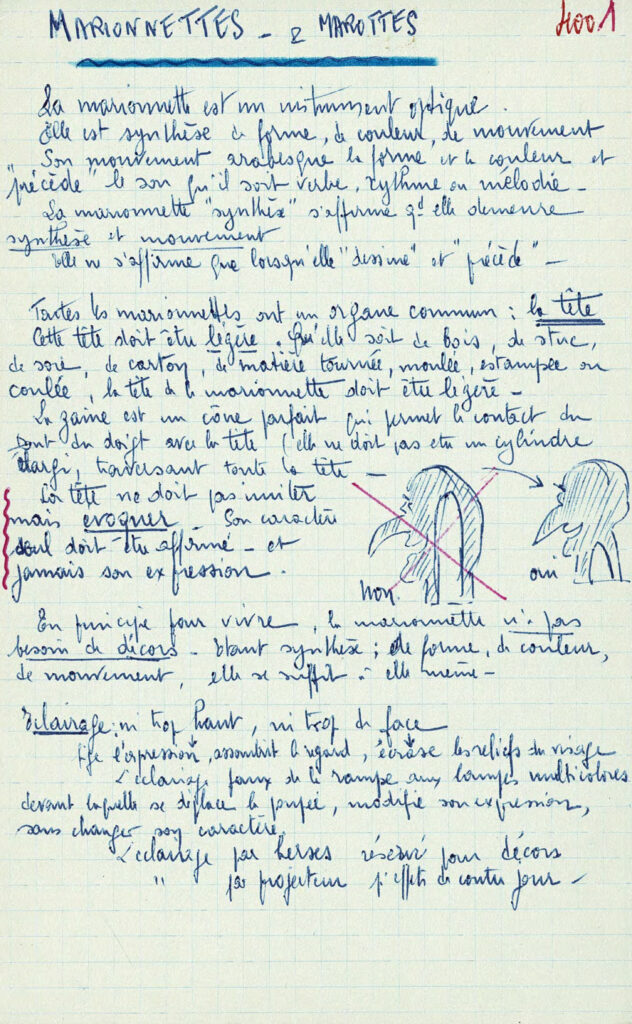 MARIONNETTES - & MAROTTES
4001
La marionnette est un instrument optique.
Elle est synthèse de forme, de couleur, de mouvement
Son mouvement arabesque la forme et la couleur et
"précède" le son qu'il soit verbe, rythme ou mélodie -
La marionnette "synthèse" s'affirme qd elle demeure
synthèse et mouvement
Elle ne s'affirme que lorsqu'elle "dessine" et "précède" -
Toutes les marionnettes ont un organe commun : la tête
Cette tête doit être légère. Qu'elle soit de bois, de stuc,
de soie, de carton, de matière tournée, moulée, estampée ou
coulée, la tête de la marionnette doit être légère -
La gaine est un cône parfait qui permet le contact du
bout du doigt avec la tête (elle ne doit pas être un cylindre
élargi, traversant toute la tête -
La tête ne doit pas imiter
mais evoquer - Son caractère
seul doit être affirmé - et
jamais son expression.
non
oui
En principe pour vivre, la marionnette n'a pas
besoin de décors - Etant synthèse ; de forme, de couleur,
de mouvement, elle se suffit à elle même -
Eclairage : ni trop haut, ni trop de face
fige l'expression, assombrit le regard, écrase les reliefs du visage
L'éclairage faux de la rampe aux lampes multicolores
devant laquelle se déplace la poupée, modifie son expression,
sans changer son caractère.
L'éclairage par herses réservé pour décors
" par projecteur p. effets de contre jour -